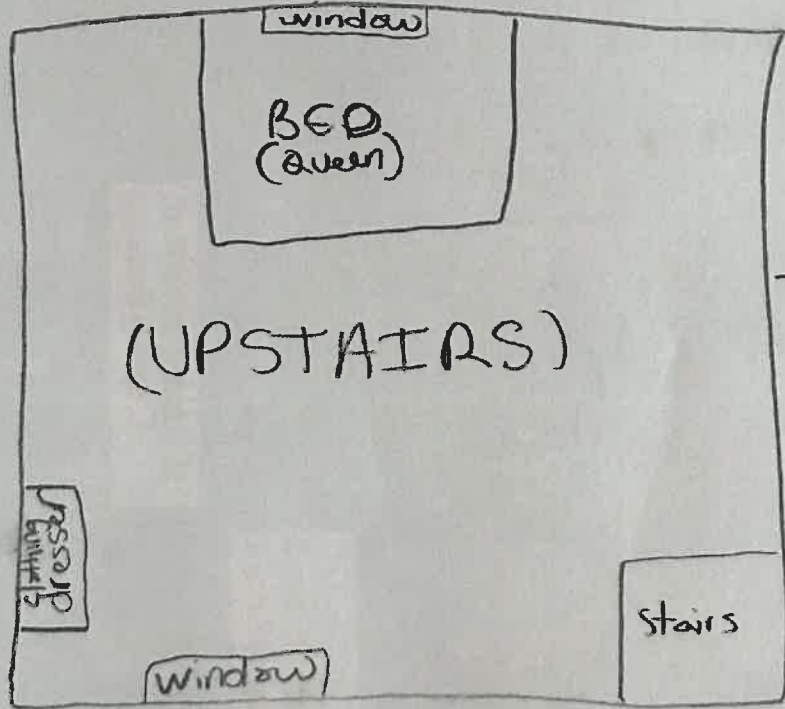 window
BED
(Queen)
(UPSTAIRS)
dresser
Stairs
window